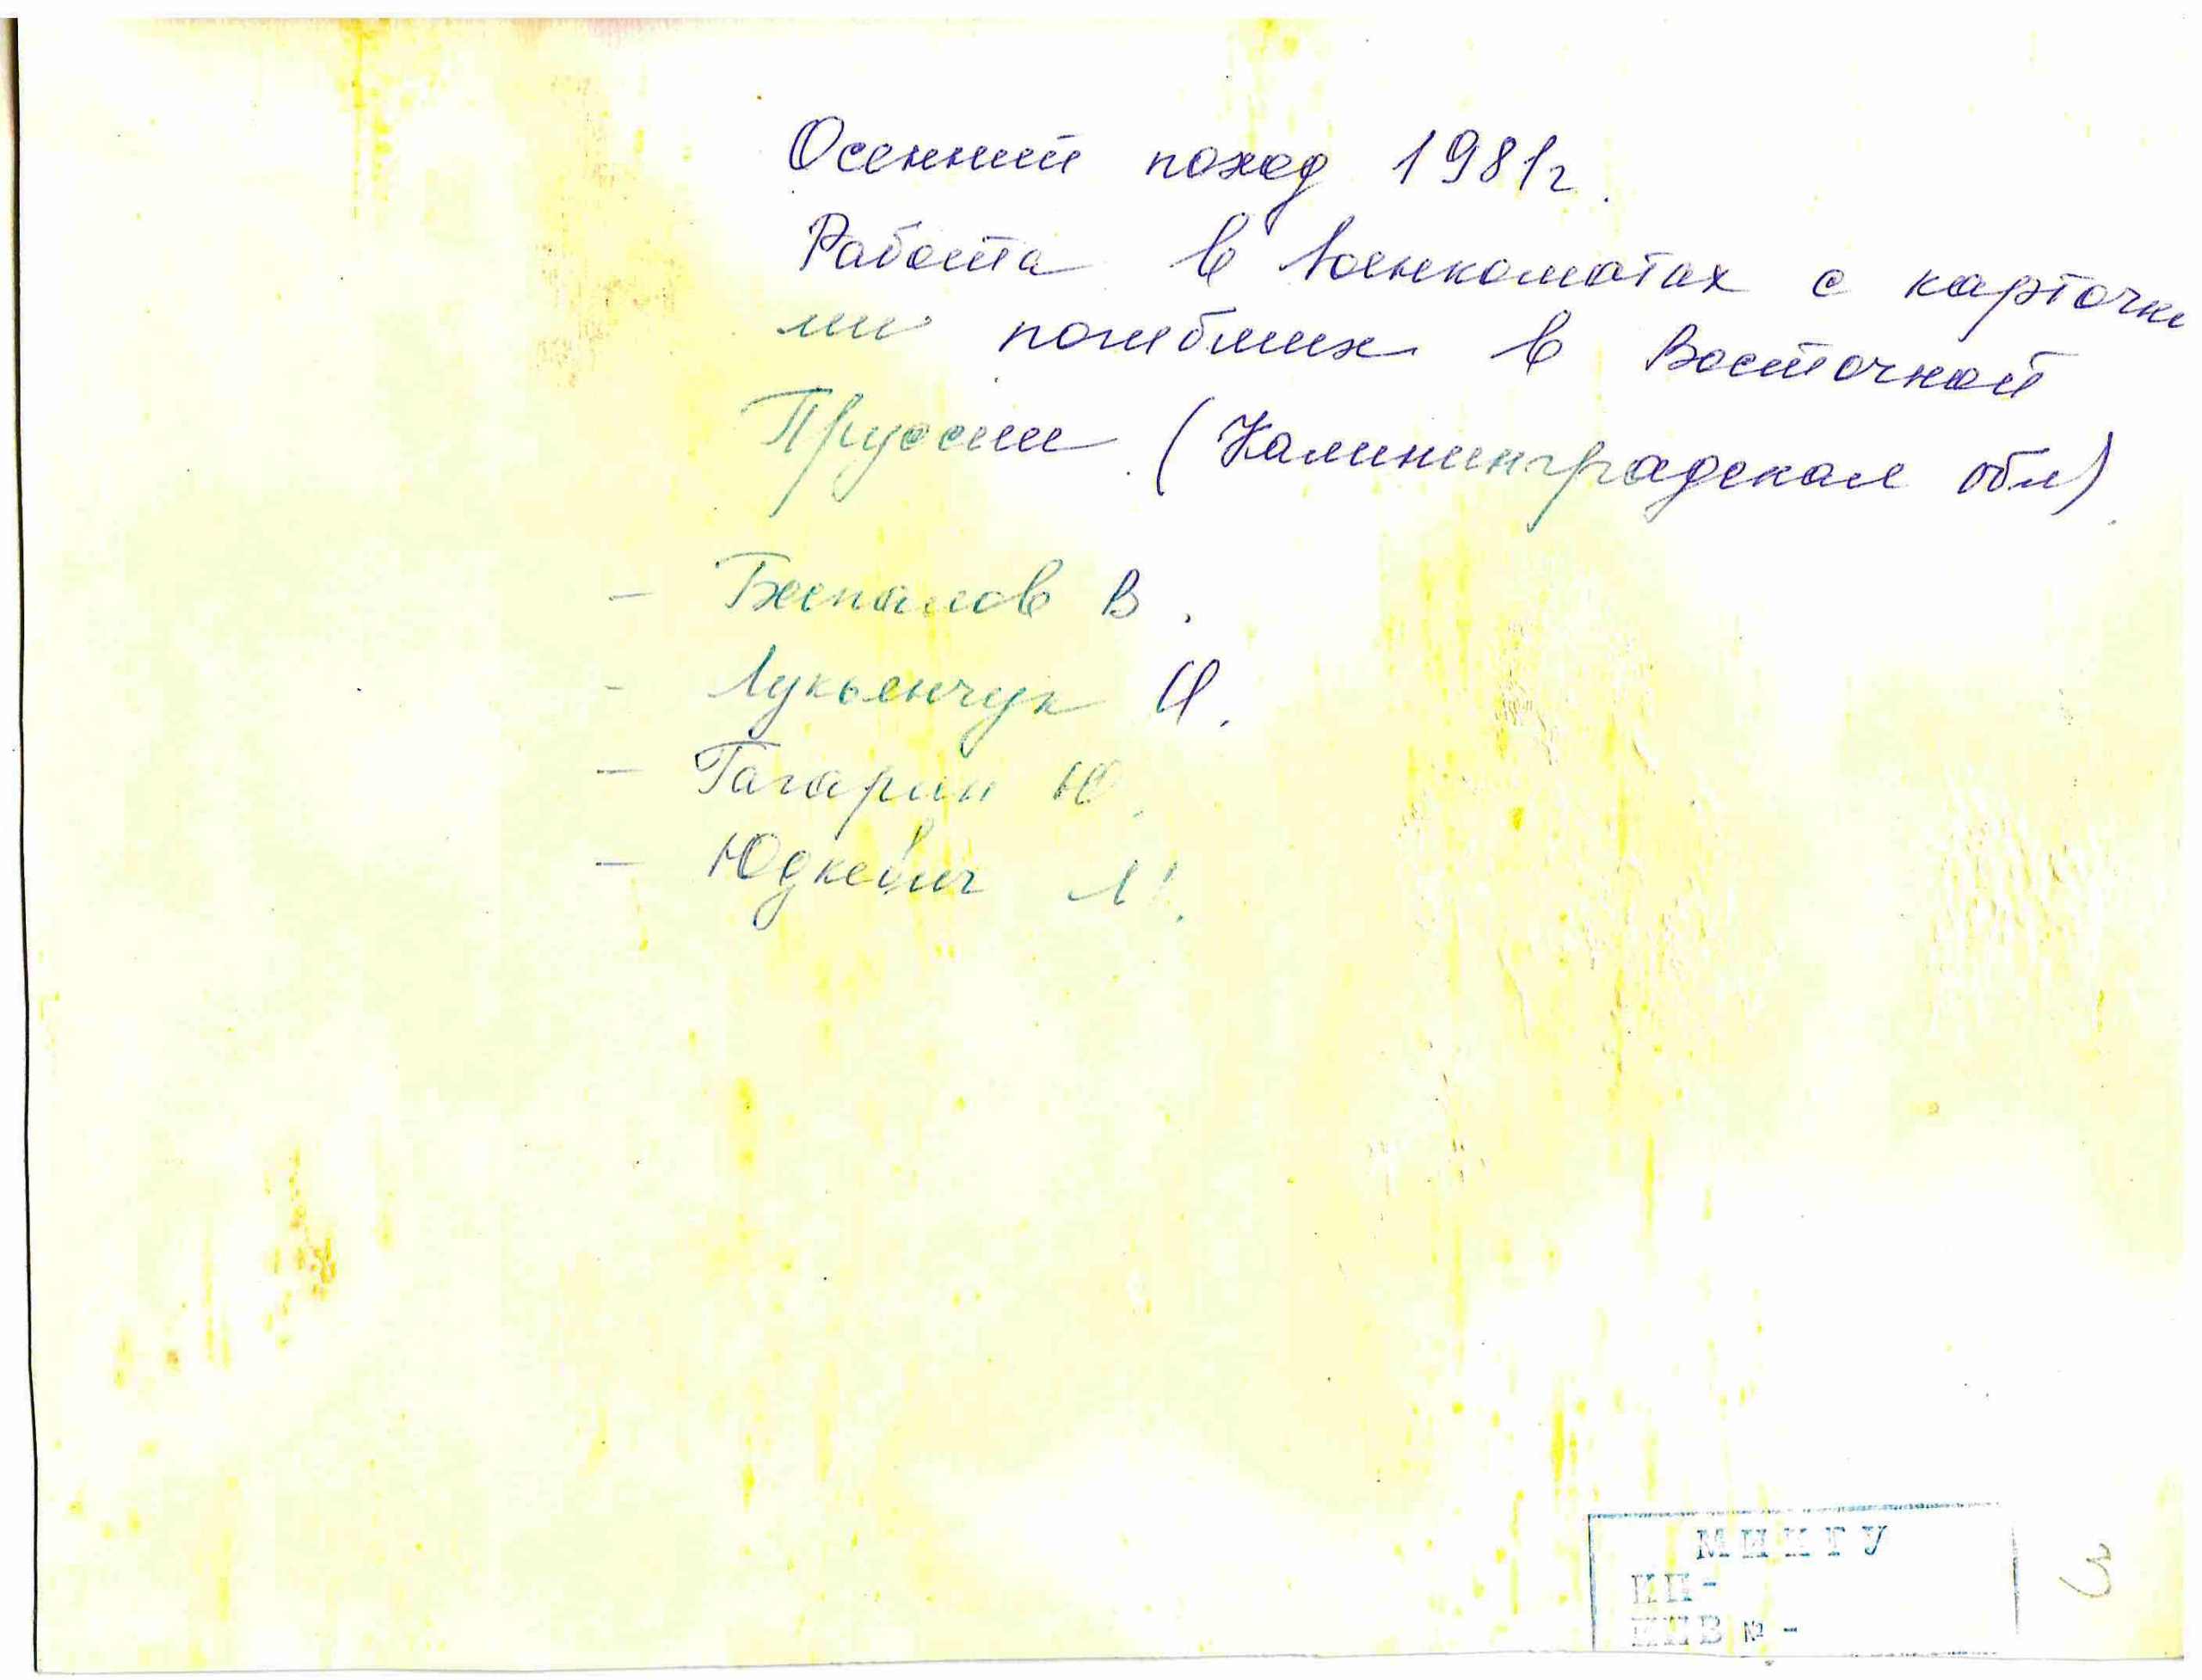 Осенний поход 1981г.
Работа в военкоматах с карточка
ми погибших в Восточной
Пруссии (Калининградская обл)
- Беспалов В.
- Лукьянчук И.
- Гагарин Ю.
- Юдкевич М.
КП-
ИНВ № -
3